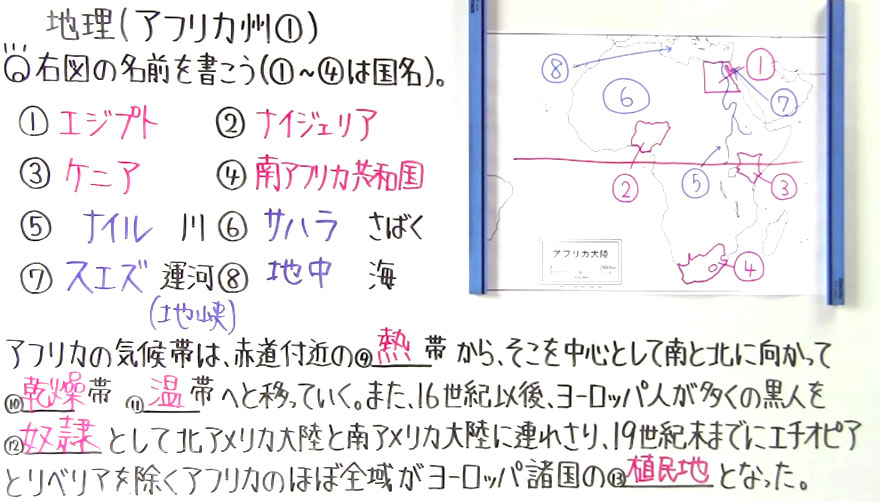 地理(アフリカ州①)
右図の名前を書こう(①～④は国名)。
① エジプト ② ナイジェリア
③ ケニア ④ 南アフリカ共和国
⑤ ナイル 川 ⑥ サハラ さばく
⑦ スエズ 運河 ⑧ 地中 海
(地峡)
⑧ ⑥ ① ⑦
② ⑤ ③
④
アフリカ大陸
アフリカの気候帯は、赤道付近の⑨熱帯から、そこを中心として南と北に向かって
⑩乾燥帯 ⑪温帯へと移っていく。また、16世紀以後、ヨーロッパ人が多くの黒人を
⑫奴隷として北アメリカ大陸と南アメリカ大陸に連れさり、19世紀末までにエチオピア
とリベリアを除くアフリカのほぼ全域がヨーロッパ諸国の⑬植民地となった。